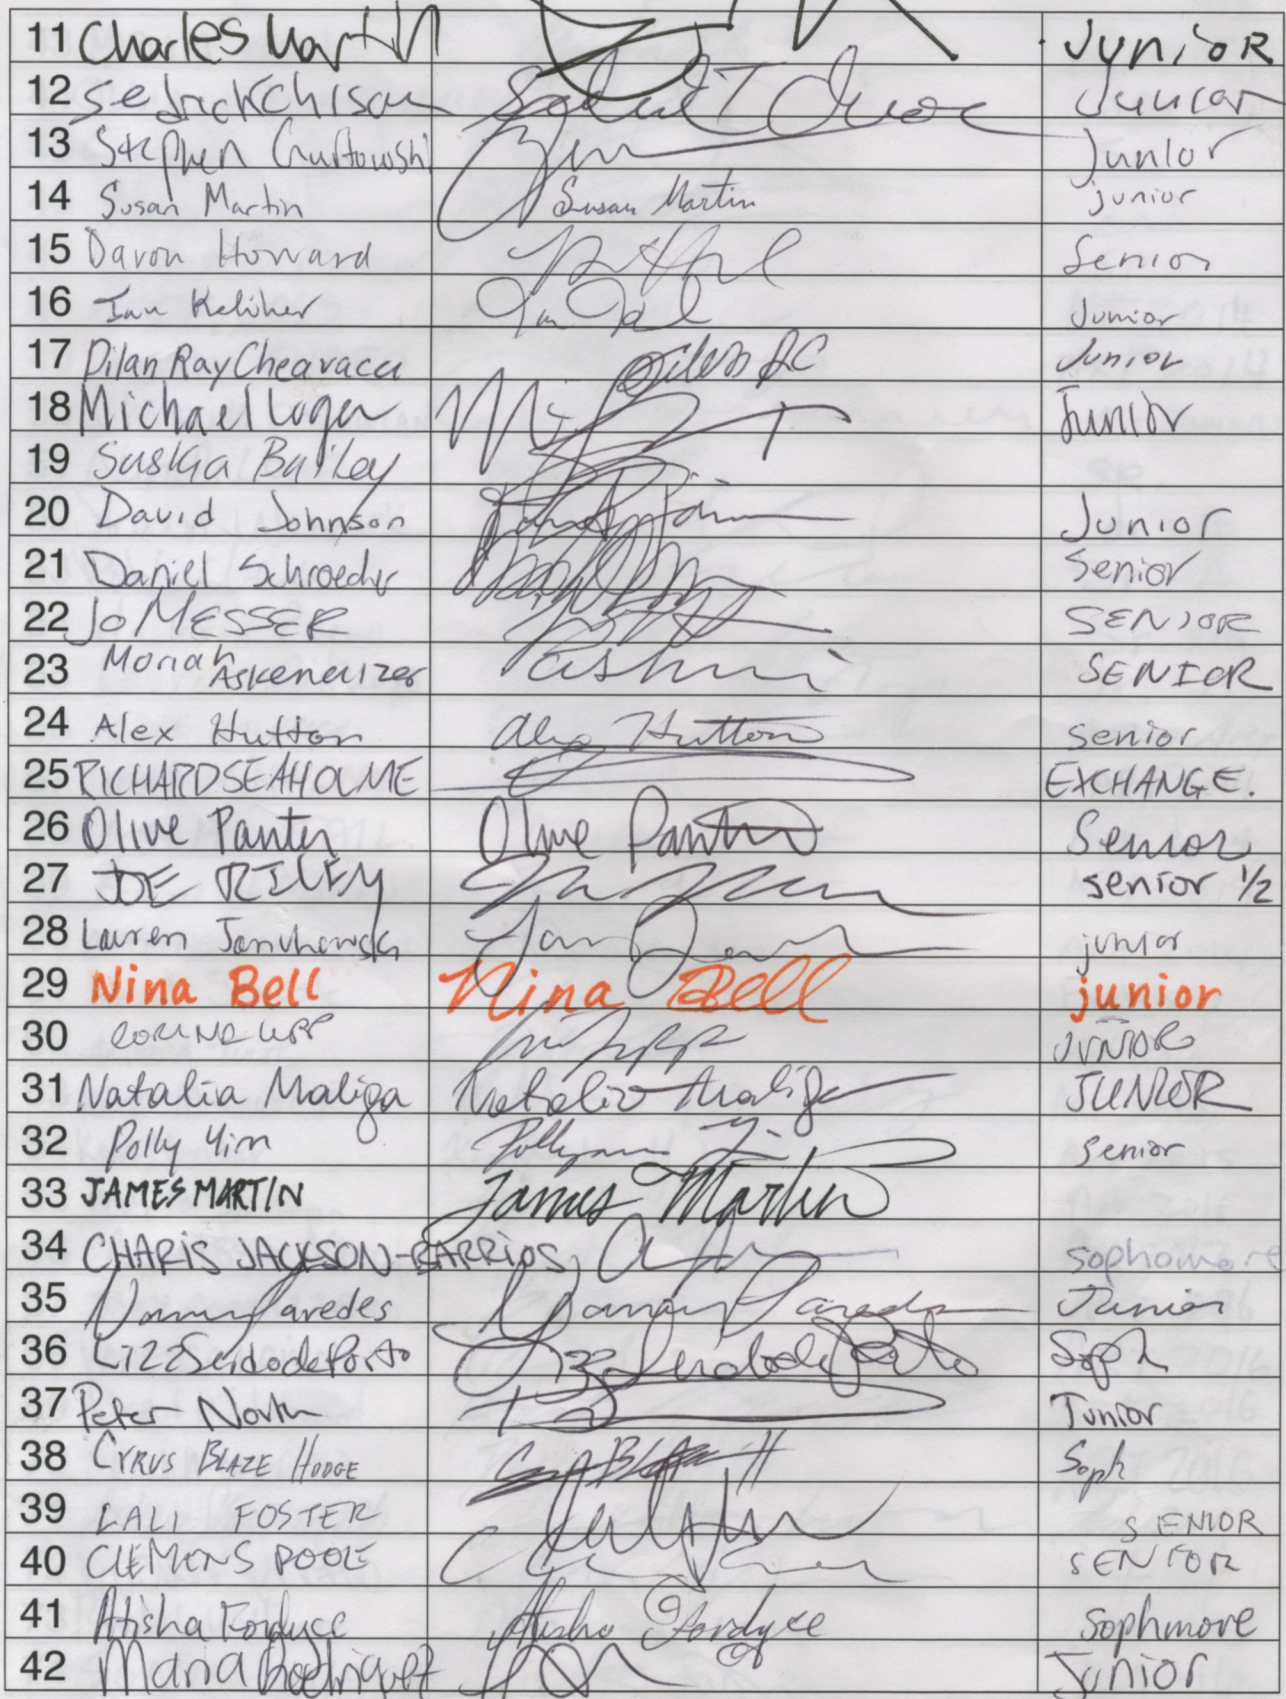 11 Charles Martin Junior
12 Sedrick Chisom Junior
13 Stephen Junior
14 Susan Martin Susan Martin junior
15 Davon Howard Senior
16 Ian Keliher Junior
17 Dilan Ray Cheavacci Dilan RC Junior
18 Michael Logan Junior
19 Saskia Bailey
20 David Johnson Junior
21 Daniel Schroeder Senior
22 Jo MESSER SENIOR
23 Moriah Askenaizer SENIOR
24 Alex Hutton Alex Hutton senior
25 RICHARD SEAHOLME EXCHANGE.
26 Olive Panter Olive Panter Senior
27 JOE RILEY senior 1/2
28 Lauren junior
29 Nina Bell Nina Bell junior
30 CORINNE JUNIOR
31 Natalia Maliga Natalia Maliga JUNIOR
32 Polly Yim Pollyanna Yim Senior
33 JAMES MARTIN James Martin
34 CHARIS JACKSON-BARRIOS sophomore
35 Paredes Paredes Junior
36 Lizz Soph
37 Peter North Junior
38 CYRUS BLAZE HODGE Soph
39 LALI FOSTER SENIOR
40 CLEMENS POOLE SENIOR
41 Atisha Fordyce Atisha Fordyce Sophmore
42 Maria Rodriguez Junior